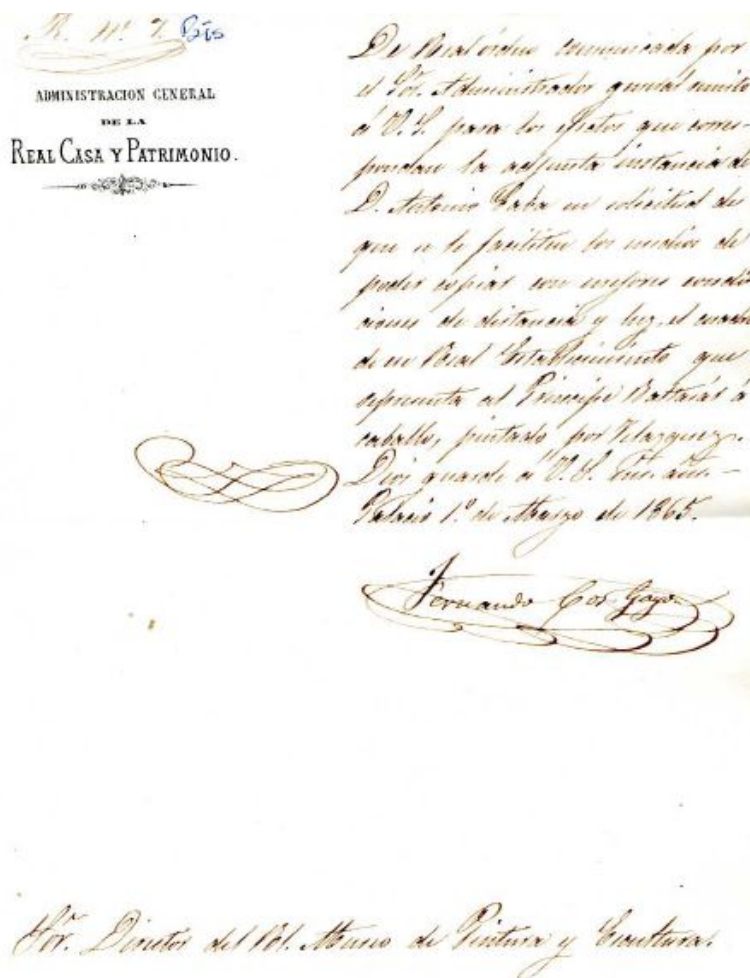 R. nº 7. Bis
ADMINISTRACION GENERAL
DE LA
REAL CASA Y PATRIMONIO.
De Real órden comunicada por
el Sor. Administrador general remito
á V.S. para los efectos que corres-
pondan la adjunta instancia de
D. Antonio Caba en solicitud de
que se le faciliten los medios de
poder copiar con mejores condi
ciones de distancia y luz, el cuadro
de ese Real Establecimiento que
representa al Principe Baltasar á
caballo, pintado por Velazquez.
Dios guarde á V.S. ms. as.-
Palacio 1º de Marzo de 1865.
Fernando Cos-Gayon
Sor. Director del Rl. Museo de Pintura y Escultura.